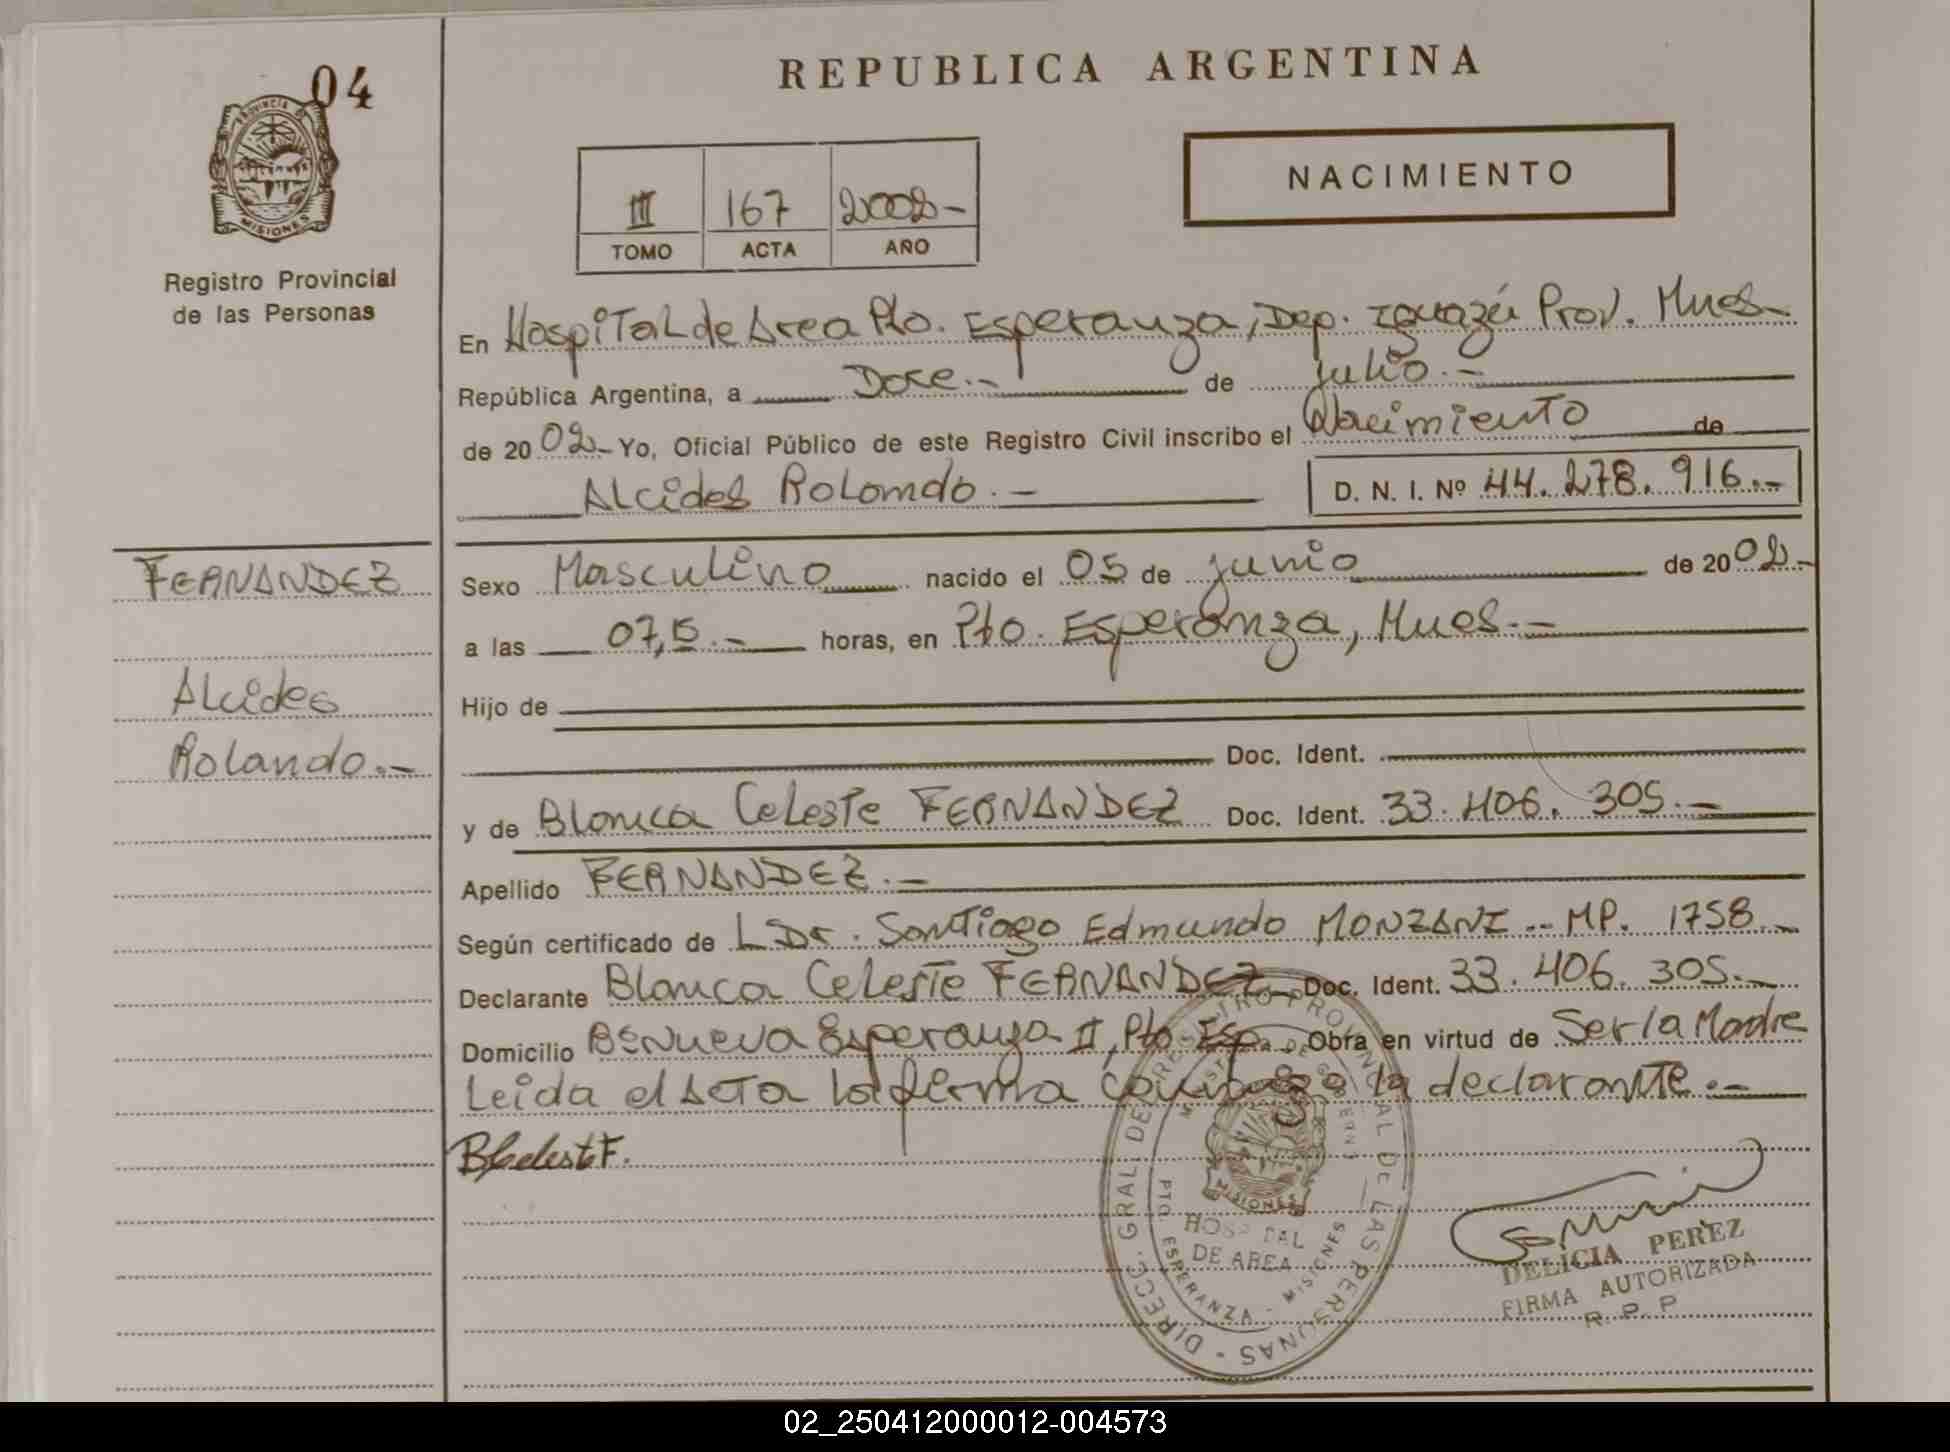 04
PROVINCIA DE
MISIONES
Registro Provincial
de las Personas
REPUBLICA ARGENTINA
NACIMIENTO
III 167 2002-
TOMO ACTA AÑO
En Hospital de Area Pto. Esperanza, Dep. Iguazú Prov. Mnes-
República Argentina, a Doce.- de julio.-
de 2002- Yo, Oficial Público de este Registro Civil inscribo el Nacimiento de
Alcides Rolando.- D. N. I. Nº 44.278.916.-
FERNANDEZ
Alcides
Rolando.-
Sexo Masculino nacido el 05 de junio de 2002-
a las 07,15.- horas, en Pto. Esperanza, Mnes.-
Hijo de
Doc. Ident.
y de Blanca Celeste FERNANDEZ Doc. Ident. 33.406.305.-
Apellido FERNANDEZ.-
Según certificado de L Dr. Santiago Edmundo MONZANI.- MP. 1758.-
Declarante Blanca Celeste FERNANDEZ Doc. Ident. 33.406.305.-
Domicilio Bº Nueva Esperanza II, Pto Esp. Obra en virtud de Ser la Madre
Leida el Acta la firma conmigo la declarante.-
BCelesteF.
DIRECC. GRAL. DE REGISTRO PROVINCIAL DE LAS PERSONAS
MISIONES
HOSPITAL
DE AREA
PTO. ESPERANZA - MISIONES
DELICIA PEREZ
FIRMA AUTORIZADA
R. P. P
02_250412000012-004573